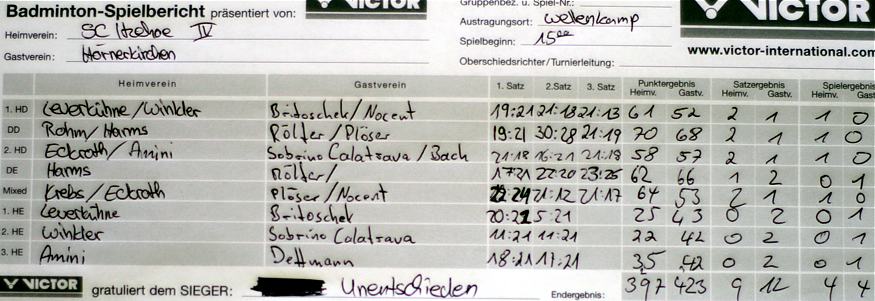 Badminton-Spielbericht präsentiert von: VICTOR
Gruppenbez. u. Spiel-Nr.:
VICTOR
Heimverein: SC Itzehoe IV
Austragungsort: Wellenkamp
Gastverein: Hörnerkirchen
Spielbeginn: 15⁰⁰
www.victor-international.com
Oberschiedsrichter/Turnierleitung:
Heimverein Gastverein 1. Satz 2.Satz 3. Satz Punktergebnis Heimv. Gastv. Satzergebnis Heimv. Gastv. Spielergebnis Heimv. Gastv.
1. HD Leverkühne/Winkler Britoschek/Nocent 19:21 21:18 21:13 61 52 2 1 1 0
DD Rohm/Harms Rölfer/Plöser 19:21 30:28 21:19 70 68 2 1 1 0
2. HD Eckroth/Amini Sobrino Calatrava/Bach 21:18 16:21 21:18 58 57 2 1 1 0
DE Harms Rölfer/ 17:21 22:20 23:25 62 66 1 2 0 1
Mixed Krebs/Eckroth Plöser/Nocent 22:24 21:12 21:17 64 53 2 1 1 0
1. HE Leverkühne Britoschek 20:22 5:21 25 43 0 2 0 1
2. HE Winkler Sobrino Calatrava 11:21 11:21 22 42 0 2 0 1
3. HE Amini Dettmann 18:21 17:21 35 42 0 2 0 1
VICTOR gratuliert dem SIEGER: Unentschieden Endergebnis: 397 423 9 12 4 4